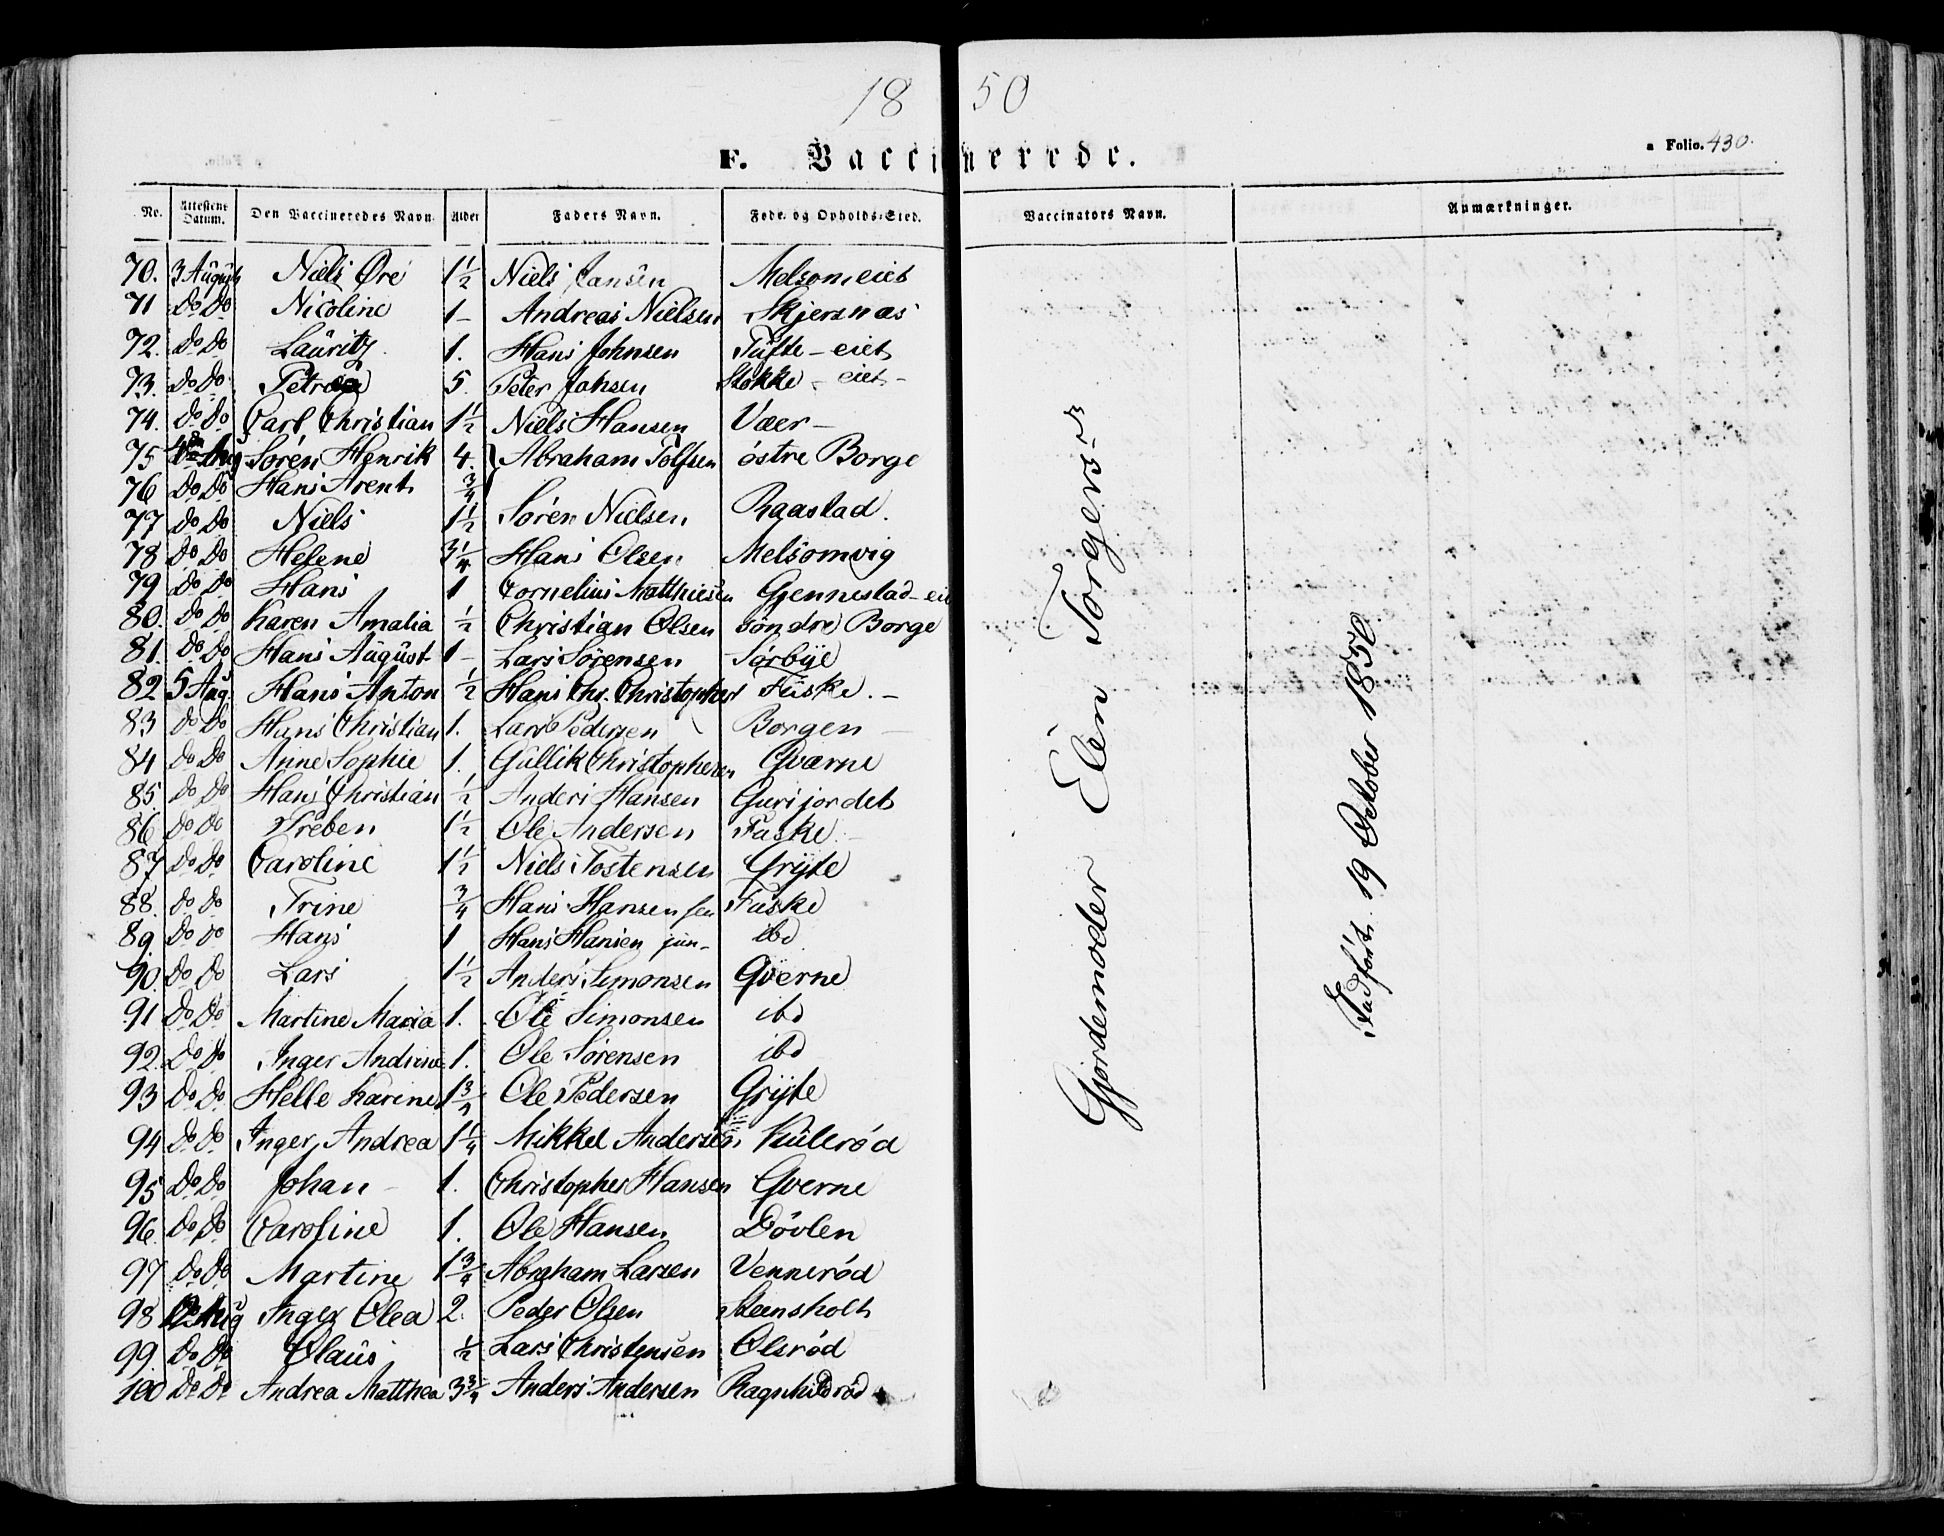 1850
F. Vaccinerede.
a Folio. 430.
No. Attestens Datum. Den Vaccineredes Navn. Alder Faders Navn. Føde- og Opholds-Sted. Vaccinators Navn. Anmærkninger.
70. 3 August Niels Øre 1½ Niels Jansen Melsom eiet
71 Do Do Nicoline 1 – Andreas Nielsen Skjersnæs
72. Do Do Lauritz 1. Hans Johnsen Tufte – eiet
73. Do Do 5. Peter Johsen Stokke – eiet –
74. Do Do Carl Christian 1½ Niels Hansen Væer –
75 Aug Søren Henrik 4. } Abraham Tolfsen østre Borge
76 Do Do Hans Arent ¾
77 Do Do Niels 1½ Søren Nielsen Raastad.
78 Do Do Helene 3¼ Hans Olsen Melsomvig
79 Do Do Hans 1 Cornelius Matthiesen Gjennestad – eie
80. Do Do Karen Amalia ½ Christian Olsen søndre Borge
81. Do Do Hans August 1 – Lars Sørensen Sørbye
82 5 Aug. Hans Anton ½ Hans Chr. Christophers Fuske. –
83 Do Do Hans Christian 1. Lars Pedersen Borgen –
84 Do Do Anne Sophie 1. Gullik Christophersen Qværne
85. Do Do Hans Christian ½ Anders Hansen Gurijordet
86 Do Do Preben 1½ Ole Andersen Fuske –
87 Do Do Caroline 1½ Niels Tostensen Gryte
88. Do Do Trine ¾ Hans Hansen sen Fuske
89 Do Do Hans 1 Hans Hansen jun– ibd
90. Do Do Lars 1½ Anders Simonsen Qverne
91 Do Do Martine Maria 1. Ole Simonsen ibd
92. Do Do Inger Andrine 1. Ole Sørensen ibd
93 Do Do Helle Karine 1¾ Ole Pedersen Gryte
94 Do Do Inger Andrea 1¼ Mikkel Andersen Kullerød
95 Do Do Johan – 1. Christopher Hansen Qverne
96. Do Do Caroline 1. Ole Hansen Døvlen
97 Do Do Martine 1¾ Abraham Larsen Vennerød
98 Aug Inger Olea 2. Peder Olsen Steensholt
99. Do Do Olaus ½ Lars Christensen Olsrød
100 Do Do Andrea Matthea 3¾ Anders Andersen Ragnhildrød
Gjordemoder Elen Torgersdr
Indført 19 October 1850